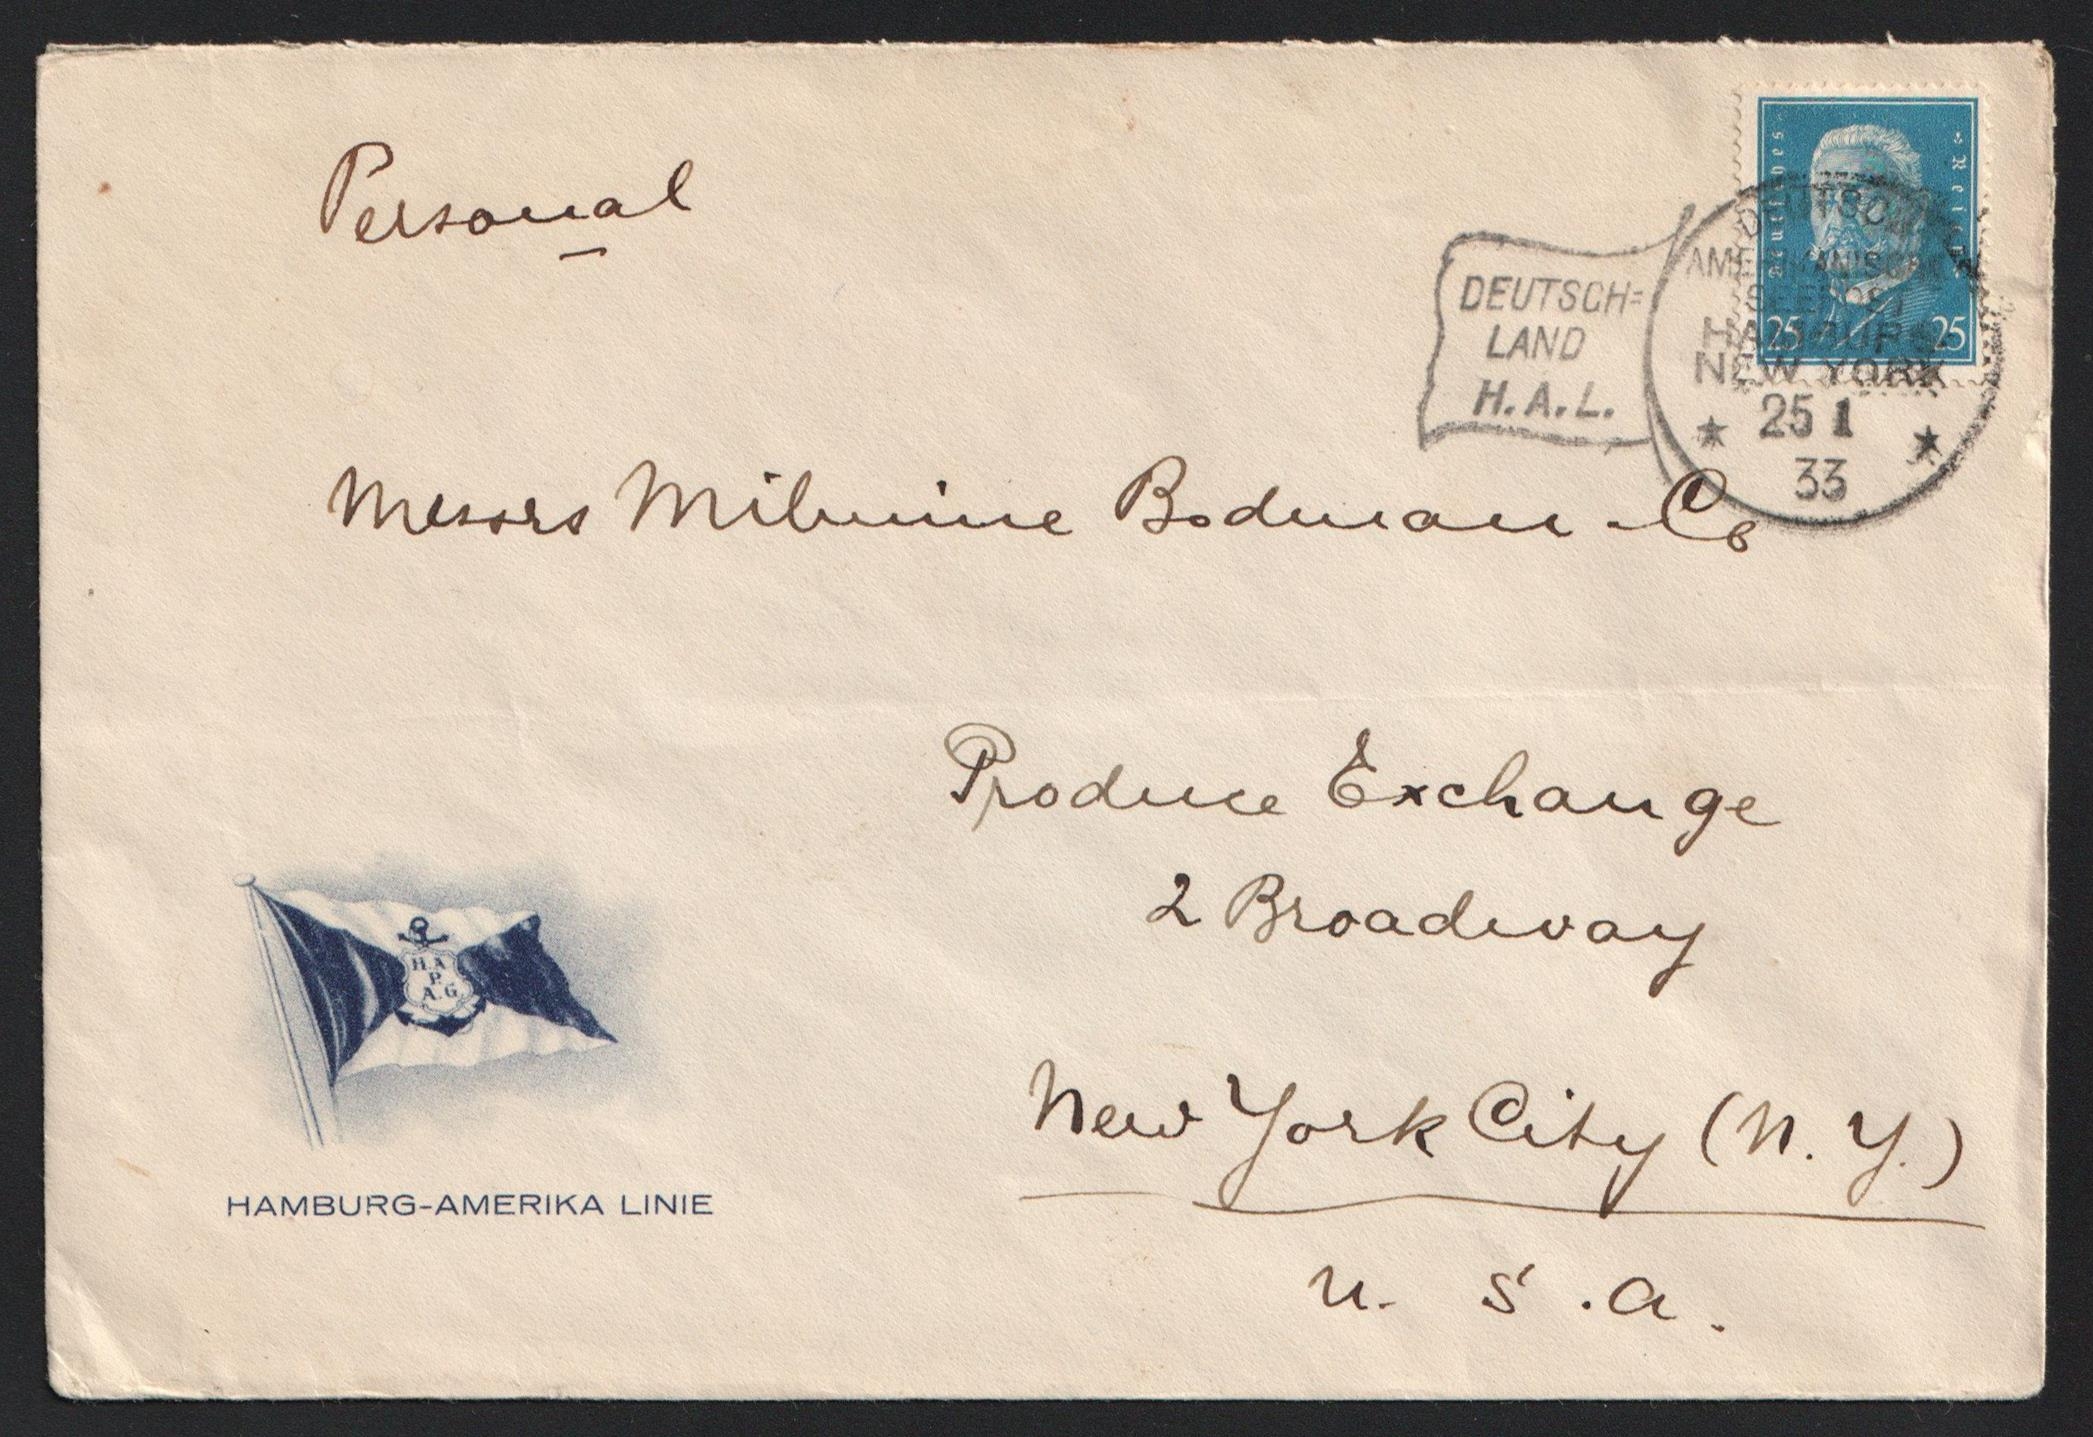 Personal
Deutsches Reich
25 25
DEUTSCH=
LAND
H.A.L.
DEUTSCH
AMERIKANISCHE
SEEPOST
HAMBURG
NEW YORK
* 25 1 *
33
Messrs Milmine Bodman Co
Produce Exchange
2 Broadway
New York City (N. Y.)
U. S. A.
H.A.
P.
A.G.
HAMBURG-AMERIKA LINIE